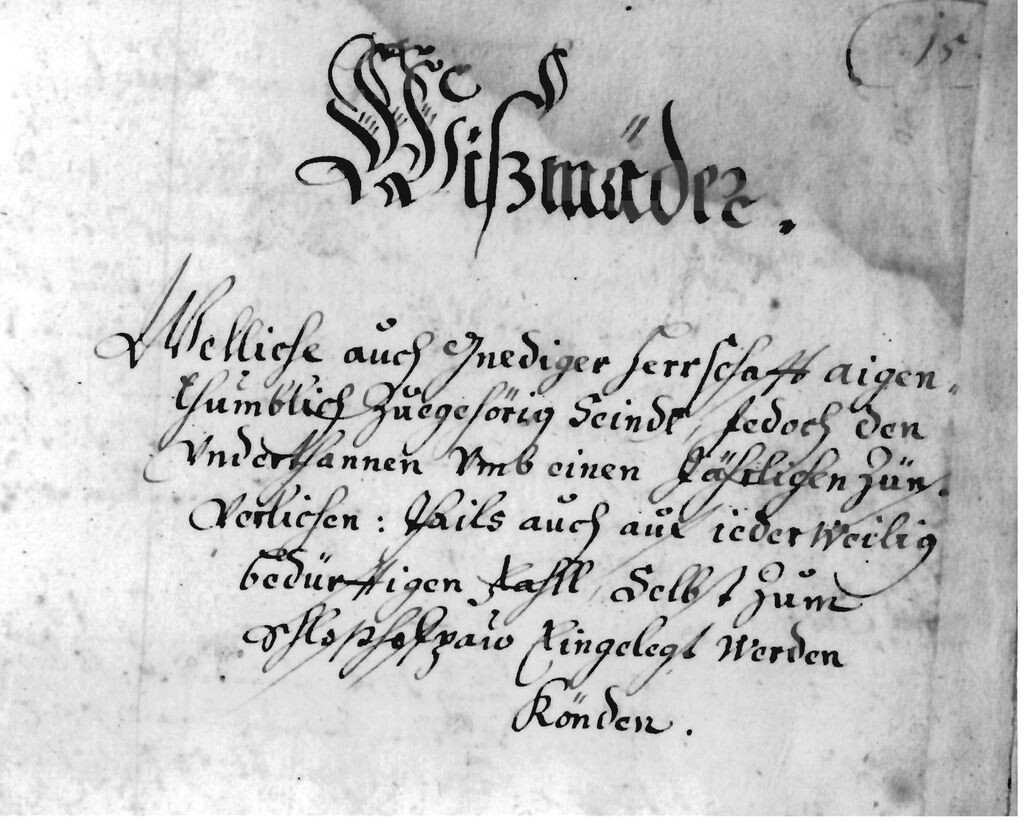 15
Wißmäder.
Welliche auch Gnediger Herrschafft aigen-
thumblich Zuegehörig Seindt, Jedoch den
Vnderthannen Vmb einen Jährlichen Zün
Verlichen: Thails auch auf iederweilig
bedürfftigen fahll, Selbst Zum
Eingelegt Werden
Könden.